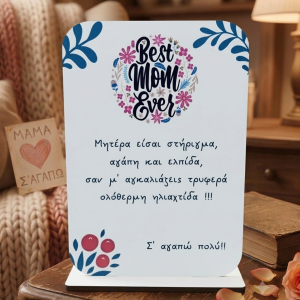 Best
Mom
Ever
Μητέρα είσαι στήριγμα,
αγάπη και ελπίδα,
σαν μ' αγκαλιάζεις τρυφερά
ολόθερμη ηλιαχτίδα !!!
Σ' αγαπώ πολύ!!
ΜΑΜΑ
Σ'ΑΓΑΠΩ